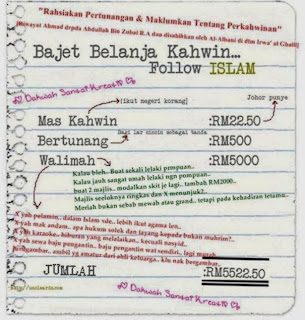 "Rahsiakan Pertunangan & Maklumkan Tentang Perkahwinan"
(Riwayat Ahmad drpda Abdullah Bin Zubai R.A dan disahihkan oleh Al-Albani di dlm Irwa' al Ghalil)
Bajet Belanja Kahwin...
Follow ISLAM
Dakwah Sangat Kreatif
(ikut negeri korang)
Johor punye
Mas Kahwin :RM22.50
Bagi lar cincin sebagai tanda
Bertunang :RM500
Walimah :RM5000
Kalau bleh.. Buat sekali lelaki pempuan..
Kalau jauh sangat umah lelaki ngn pompuan..
buat 2 majlis.. modalkan skit je lagi.. tambah RM2000..
Majlis seeloknya ringkas dan X menunjuk2..
Meriah bukan sebab mewah atau grand.. tetapi pada kehadiran tetamu..
X yah pelamin.. dalam Islam xde.. lebih ikut agama len..
X yah mak andam.. apa hukum solek dan tayang kepada bukan muhrim?..
X yah karaoke.. hiburan yang melalaikan.. kecuali nasyid..
X yah sewa baju pengantin.. baju pengantin wat sendiri.. lagi murah..
Pengapit.. ambil yg amat dari ahli keluarga.. klu nak bergambar..
JUMLAH :RM5522.50
Dakwah Sangat Kreatif